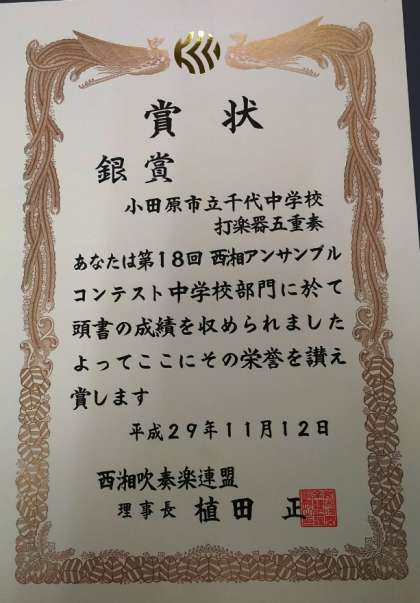 賞状
銀賞
小田原市立千代中学校
打楽器五重奏
あなたは第18回 西湘アンサンブル
コンテスト中学校部門に於て
頭書の成績を収められました
よってここにその栄誉を讃え
賞します
平成29年11月12日
西湘吹奏楽連盟
理事長 植田 正